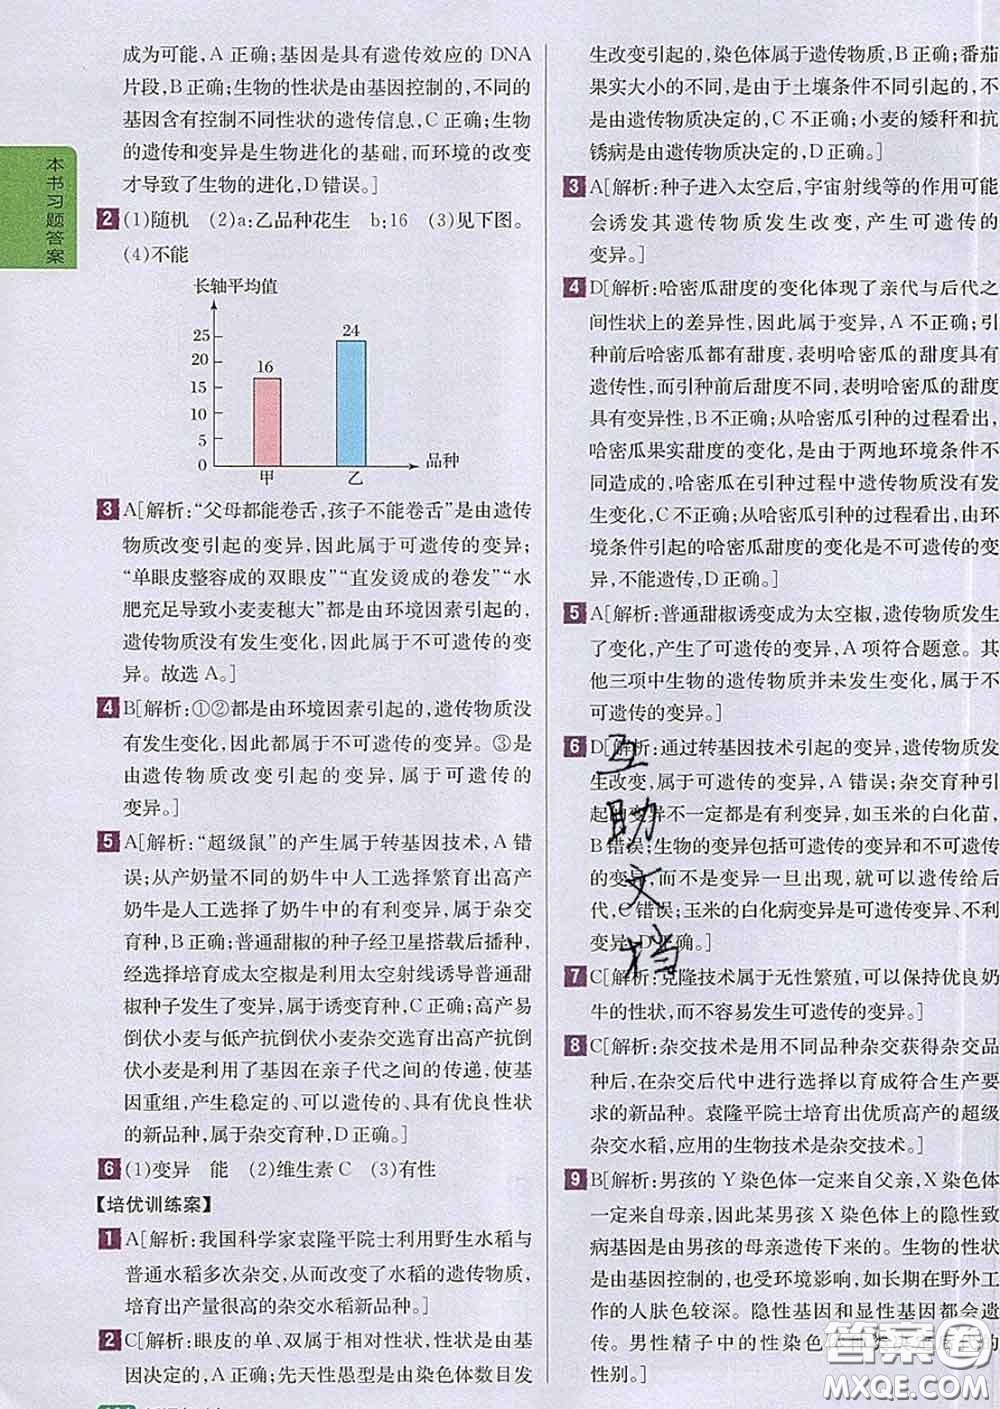 本书习题答案
成为可能,A正确;基因是具有遗传效应的DNA
片段,B正确;生物的性状是由基因控制的,不同的
基因含有控制不同性状的遗传信息,C正确;生物
的遗传和变异是生物进化的基础,而环境的改变
才导致了生物的进化,D错误。]
2 (1)随机 (2)a:乙品种花生 b:16 (3)见下图。
(4)不能
长轴平均值
25
20
15
10
5
0
16
24
甲
乙
品种
3 A[解析:“父母都能卷舌,孩子不能卷舌”是由遗传
物质改变引起的变异,因此属于可遗传的变异;
“单眼皮整容成的双眼皮”“直发烫成的卷发”“水
肥充足导致小麦麦穗大”都是由环境因素引起的,
遗传物质没有发生变化,因此属于不可遗传的变
异。故选A。]
4 B[解析:①②都是由环境因素引起的,遗传物质没
有发生变化,因此都属于不可遗传的变异。③是
由遗传物质改变引起的变异,属于可遗传的
变异。]
5 A[解析:“超级鼠”的产生属于转基因技术,A错
误;从产奶量不同的奶牛中人工选择繁育出高产
奶牛是人工选择了奶牛中的有利变异,属于杂交
育种,B正确;普通甜椒的种子经卫星搭载后播种,
经选择培育成太空椒是利用太空射线诱导普通甜
椒种子发生了变异,属于诱变育种,C正确;高产易
倒伏小麦与低产抗倒伏小麦杂交选育出高产抗倒
伏小麦是利用了基因在亲子代之间的传递,使基
因重组,产生稳定的、可以遗传的、具有优良性状
的新品种,属于杂交育种,D正确。]
6 (1)变异 能 (2)维生素C (3)有性
【培优训练案】
1 A[解析:我国科学家袁隆平院士利用野生水稻与
普通水稻多次杂交,从而改变了水稻的遗传物质,
培育出产量很高的杂交水稻新品种。]
2 C[解析:眼皮的单、双属于相对性状,性状是由基
因决定的,A正确;先天性愚型是由染色体数目发
生改变引起的,染色体属于遗传物质,B正确;番茄
果实大小的不同,是由于土壤条件不同引起的,不
是由遗传物质决定的,C不正确;小麦的矮秆和抗
锈病是由遗传物质决定的,D正确。]
3 A[解析:种子进入太空后,宇宙射线等的作用可能
会诱发其遗传物质发生改变,产生可遗传的
变异。]
4 D[解析:哈密瓜甜度的变化体现了亲代与后代之
间性状上的差异性,因此属于变异,A不正确;引
种前后哈密瓜都有甜度,表明哈密瓜的甜度具有
遗传性,而引种前后甜度不同,表明哈密瓜的甜度
具有变异性,B不正确;从哈密瓜引种的过程看出,
哈密瓜果实甜度的变化,是由于两地环境条件不
同造成的,哈密瓜在引种过程中遗传物质没有发
生变化,C不正确;从哈密瓜引种的过程看出,由环
境条件引起的哈密瓜甜度的变化是不可遗传的变
异,不能遗传,D正确。]
5 A[解析:普通甜椒诱变成为太空椒,遗传物质发生
了变化,产生了可遗传的变异,A项符合题意。其
他三项中生物的遗传物质并未发生变化,属于不
可遗传的变异。]
6 D[解析:通过转基因技术引起的变异,遗传物质发
生改变,属于可遗传的变异,A错误;杂交育种引
起的变异不一定都是有利变异,如玉米的白化苗,
B错误;生物的变异包括可遗传的变异和不可遗传
的变异,而不是变异一旦出现,就可以遗传给后
代,C错误;玉米的白化病变异是可遗传变异、不利
变异,D正确。]
7 C[解析:克隆技术属于无性繁殖,可以保持优良奶
牛的性状,而不容易发生可遗传的变异。]
8 C[解析:杂交技术是用不同品种杂交获得杂交品
种后,在杂交后代中进行选择以育成符合生产要
求的新品种。袁隆平院士培育出优质高产的超级
杂交水稻,应用的生物技术是杂交技术。]
9 B[解析:男孩的Y染色体一定来自父亲,X染色体
一定来自母亲,因此某男孩X染色体上的隐性致
病基因是由男孩的母亲遗传下来的。生物的性状
是由基因控制的,也受环境影响,如长期在野外工
作的人肤色较深。隐性基因和显性基因都会遗
传。男性精子中的性染色体
性别。]
互助文档
答案圈
MXQE.COM